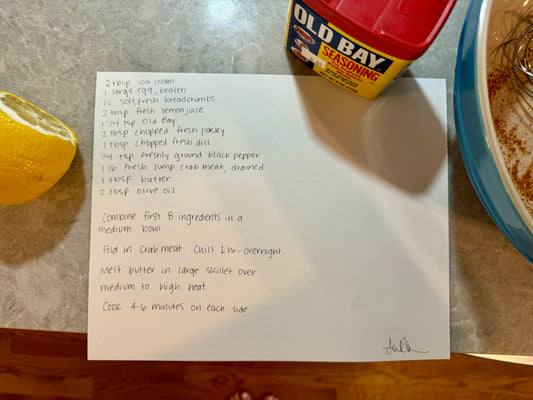 OLD BAY
SEASONING
2 tbsp sour cream
1 large egg, beaten
1c soft, fresh breadcrumbs
2 tbsp fresh lemon juice
1 1/4 tsp Old Bay
2 tbsp chopped fresh parsley
1 tbsp chopped fresh dill
1/4 tsp freshly ground black pepper
1 lb fresh lump crab meat, drained
1 tbsp butter
2 tbsp olive oil
Combine first 8 ingredients in a
medium bowl
Fold in crab meat. Chill 1 hr - overnight.
Melt butter in large skillet over
medium to high heat.
Cook 4-6 minutes on each side